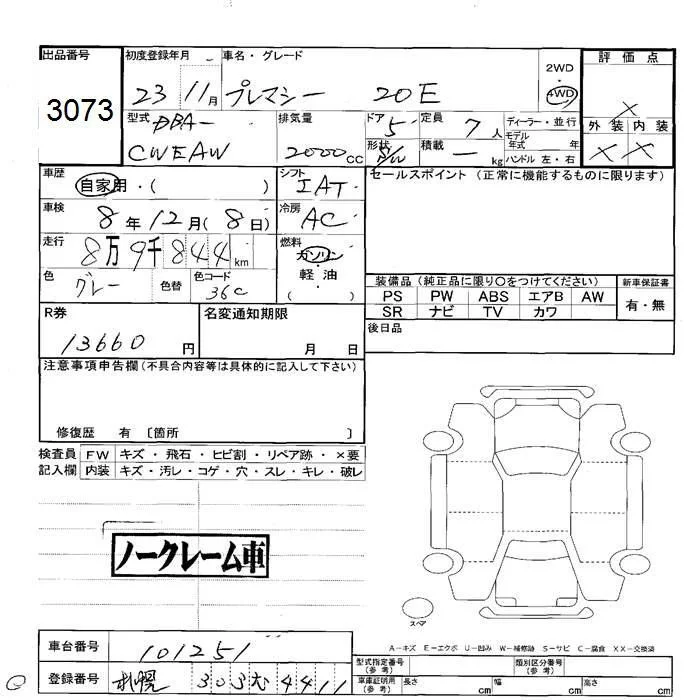 出品番号
3073
初度登録年月 車名・グレード
23 11月 プレマシー 20E
2WD
4WD
評価点
×
外装 内装
× ×
型式 DBA-
CWEAW
排気量
2000 CC
ドア 5
形状 S/W
定員 7 人
積載 — kg
ディーラー・並行
モデル年式 年
ハンドル 左・右
車歴
自家用・( )
シフト
IAT
セールスポイント(正常に機能するものに限ります)
車検
8年12月(8日)
冷房
AC
走行
8万9千844km
燃料
ガソリン
軽油
( )
色
グレー
色替
色コード
36C
装備品(純正品に限り○をつけてください)
新車保証書
PS PW ABS エアB AW
有・無
SR ナビ TV カワ
R券
13660 円
名変通知期限
月 日
後日品
注意事項申告欄(不具合内容等は具体的に記入して下さい)
修復歴 有 〔箇所 〕
検査員 FW キズ・飛石・ヒビ割・リペア跡・×要
記入欄 内装 キズ・汚レ・コゲ・穴・スレ・キレ・破レ
ノークレーム車
スペア
A-キズ E-エクボ U-凹み W-補修跡 S-サビ C-腐食 XX-交換済
車台番号
101251
登録番号
札幌 303 4411
型式指定番号(参考)
類別区分番号(参考)
車庫証明用(参考)
長さ cm
幅 cm
高さ cm